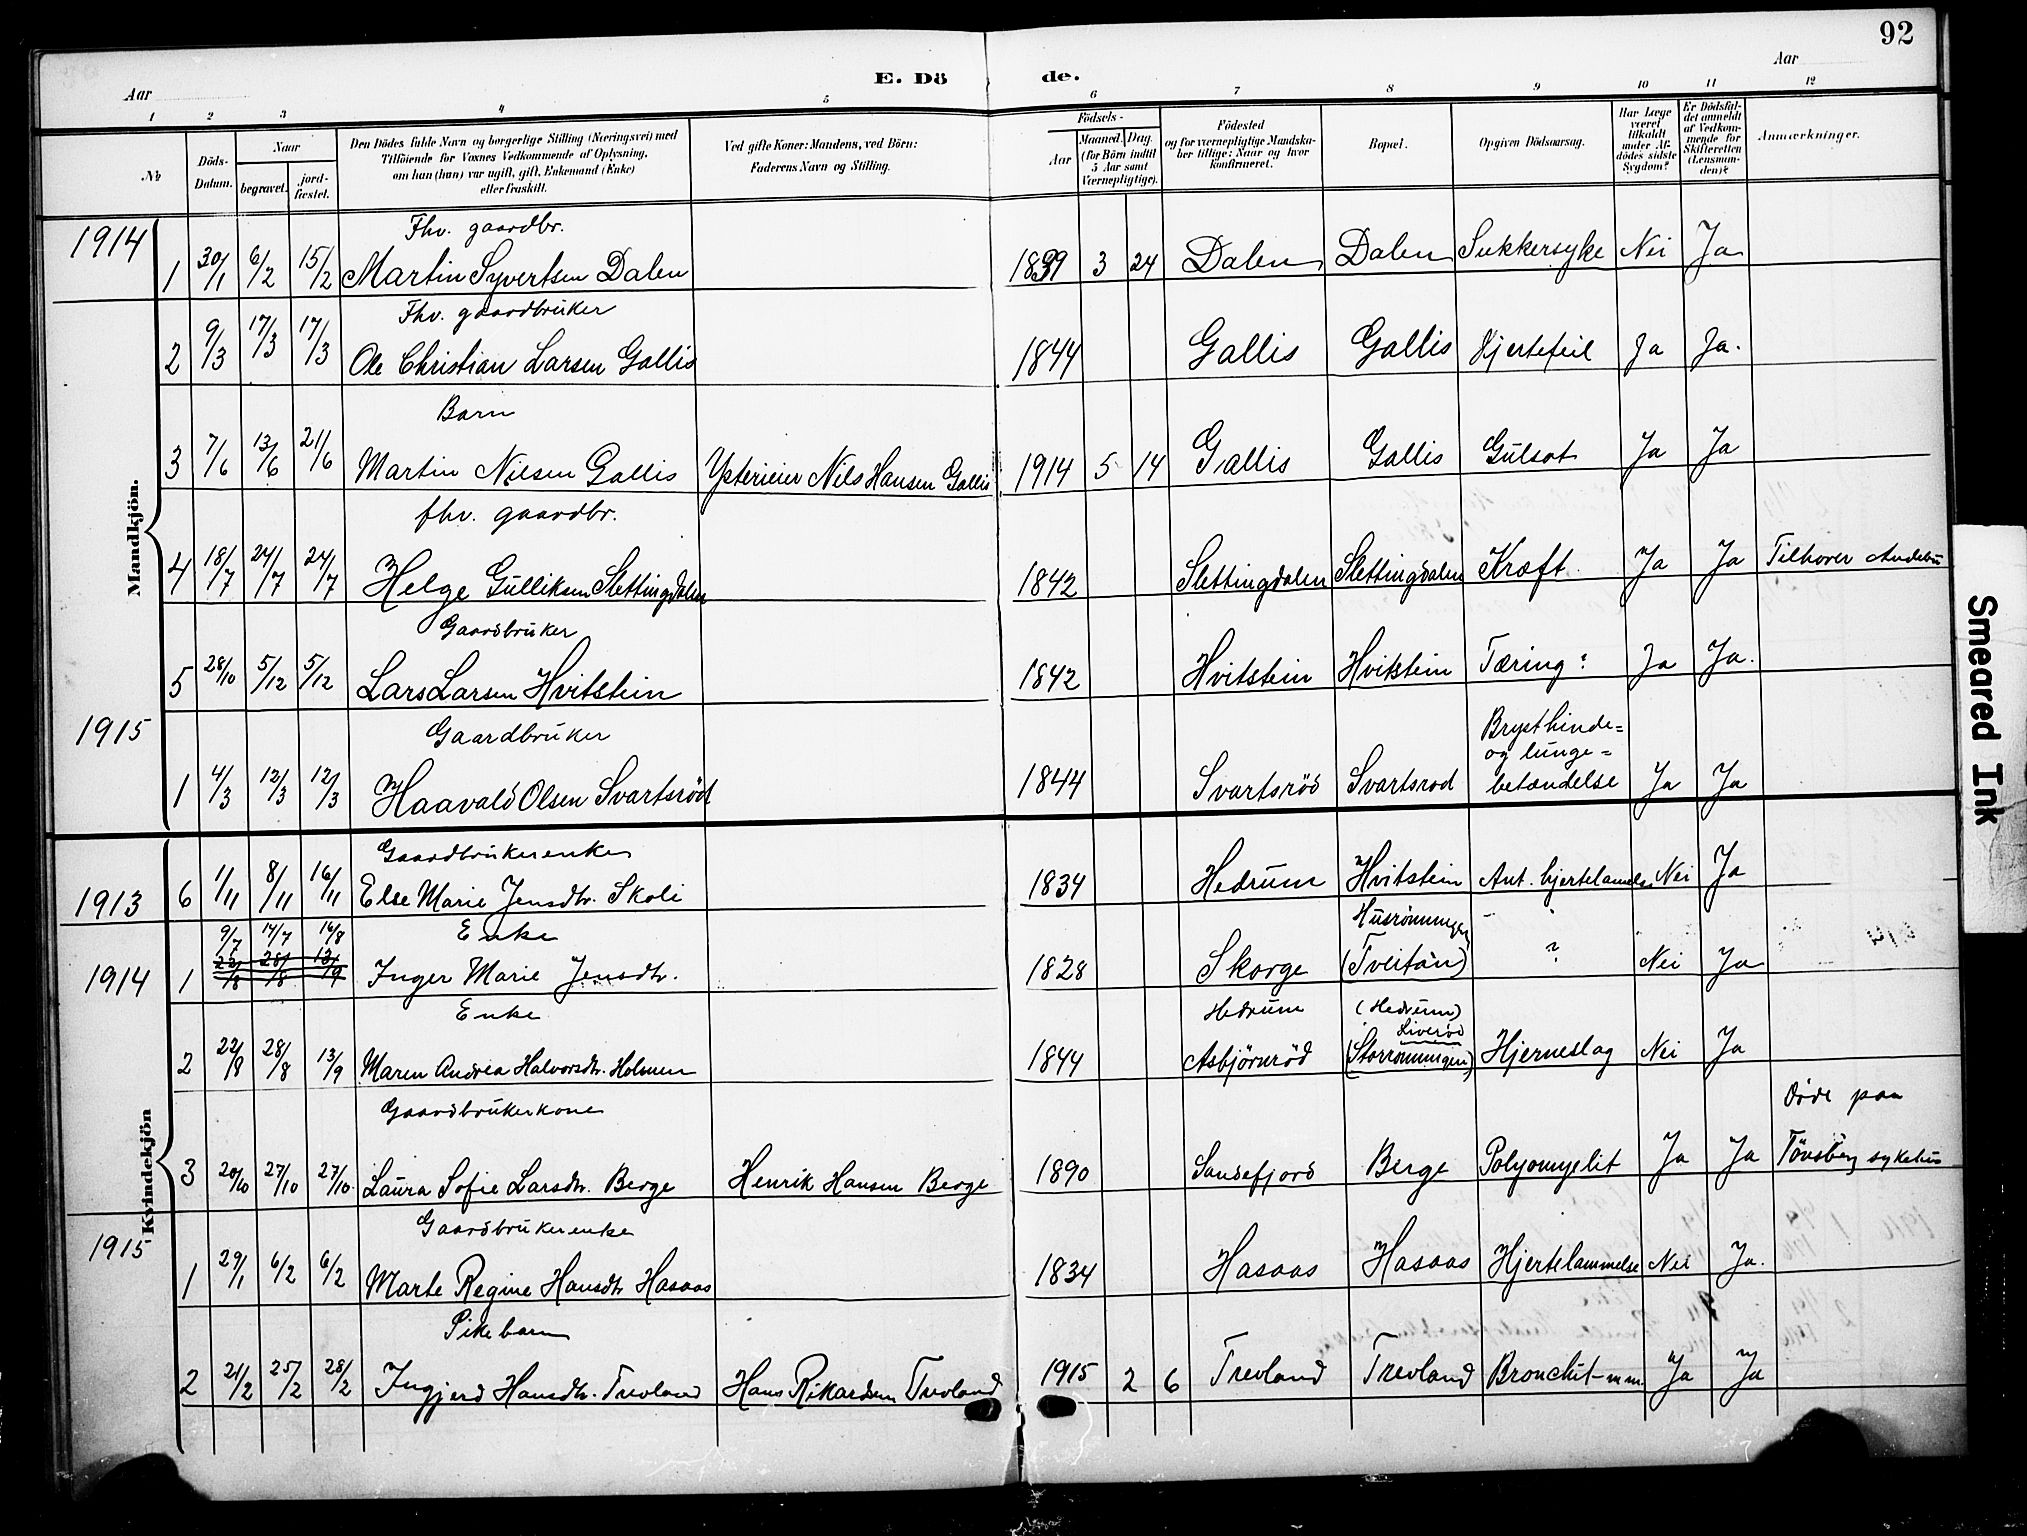 92
E. Dö de.
Aar
Aar
1 2 3 4 5 6 7 8 9 10 11 12
№
Döds-Datum.
Naar
begravet.
jord-fæstet.
Den Dödes fulde Navn og borgerlige Stilling (Næringsvei) med
Tilföiende for Voxnes Vedkommende af Oplysning,
om han (hun) var ugift, gift, Enkemand (Enke)
eller fraskilt.
Ved gifte Koner: Mandens, ved Börn:
Faderens Navn og Stilling.
Födsels-
Aar
Maaned. Dag.
(for Börn indtil
5 Aar samt
Værnepligtige).
Födested
og for værnepligtige Mandska-
ber tillige: Naar og hvor
konfirmeret.
Bopæl.
Opgiven Dödsaarsag.
Har Læge
været
tilkaldt
under Af-
dödes sidste
Sygdom?
Er Dödsfal-
det anmeldt
af Vedkom-
mende for
Skifteretten
(Lensman-
den)?
Anmærkninger.
Mandkjön.
1914
Fhv. gaardbr.
1 30/1 6/2 15/2 Martin Syvertsen Dalen 1839 3 24 Dalen Dalen Sukkersyke Nei Ja
Fhv. gaardbruker
2 9/3 17/3 17/3 Ole Christian Larsen Gallis 1844 Gallis Gallis Hjertefeil Ja Ja.
Barn
3 7/6 13/6 21/6 Martin Nilsen Gallis Ysterieier Nils Hansen Gallis 1914 5 14 Gallis Gallis Gulsot Ja Ja
fhv. gaardbr.
4 18/7 24/7 24/7 Helge Gulliksen Slettingdalen 1842 Slettingdalen Slettingdalen Kræft. Ja Ja Tilhører Andebu
Gaardbruker
5 28/10 5/12 5/12 Lars Larsen Hvitstein 1842 Hvitstein Hvitstein Tæring? Ja Ja.
1915
Gaardbruker
Brysthinde=
og lunge=
1 4/3 12/3 12/3 Haavald Olsen Svartsröd 1844 Svartsröd Svartsrod betændelse Ja Ja
Kvindekjön
Gaardbrukerenke
1913 6 1/11 8/11 16/11 Else Marie Jensdtr. Skoli 1834 Hedrum Hvitstein Ant. hjertelammelse Nei Ja
9/7 14/7 16/8 Enke Husrönningen
1914 1 22/8 28/8 13/9 Inger Marie Jensdtr. 1828 Skorge (Tveitan) ? Nei Ja
Enke Hedrum (Hedrum)
Liverød
2 22/8 28/8 13/9 Maren Andrea Halvorsdtr. Holmen 1844 Asbjörnröd (Storrönningen) Hjerneslag Nei Ja
Gaardbrukerkone Döde paa
3 20/10 27/10 27/10 Laura Sofie Larsdtr. Berge Henrik Hansen Berge 1890 Sandefjord Berge Polyomyelit Ja Ja Tönsberg sykehus
1915
Gaardbrukerenke
1 29/1 6/2 6/2 Marte Regine Hansdtr Hasaas 1834 Hasaas Hasaas Hjertelammelse Nei Ja.
Pikebarn
2 21/2 25/2 28/2 Ingjerd Hansdtr. Trevland Hans Rikardsen Trevland 1915 2 6 Trevland Trevland Bronchit Ja Ja
Smeared Ink